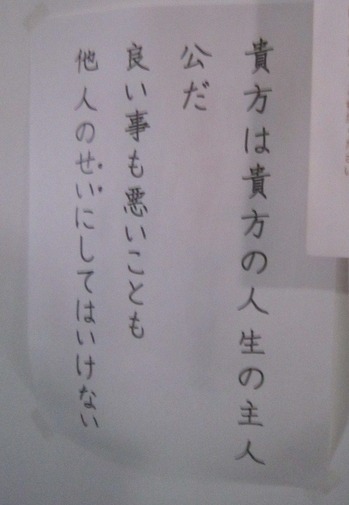 貴方は貴方の人生の主人
公だ
良い事も悪いことも
他人のせいにしてはいけない